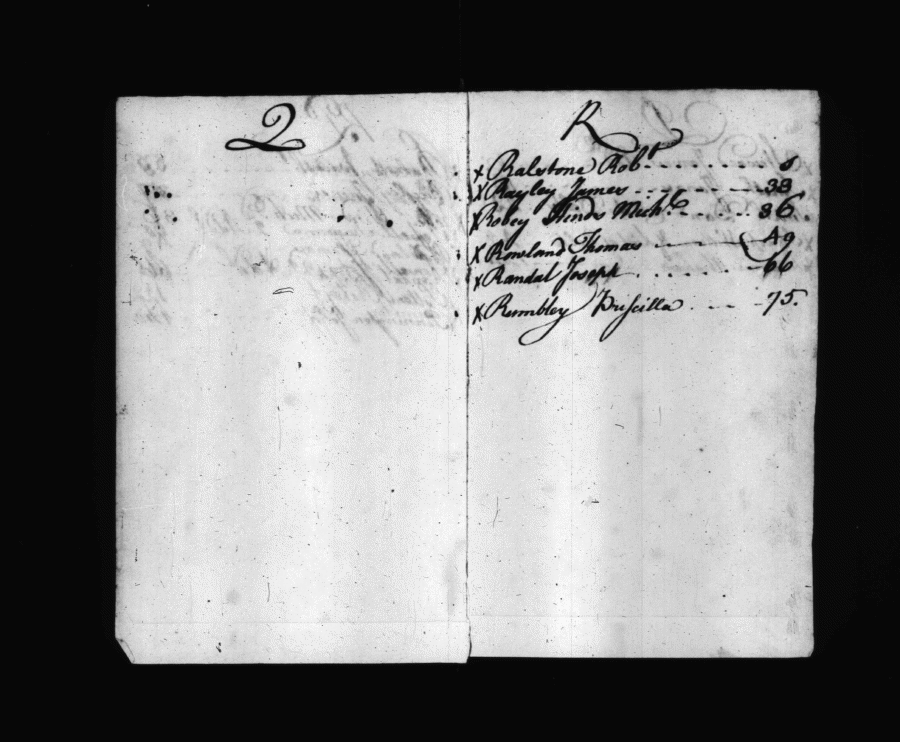 Q
R
x Ralstone Robt. - - - - - - 8
x Rayley James - - - - - - - 33
x Robey Hinds Michl. - - - - 36
x Rowland Thomas - - - - 49
x Randal Joseph - - - - - - 66
x Rumbley Priscilla - - - - 75.